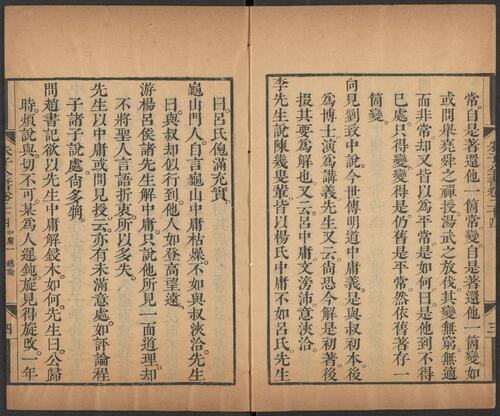 常。自是著還他一箇常。變自是著還他一箇變。如
或問舉堯舜之禪授。湯武之放伐。其變無窮無適
而非常。却又皆以為平常。是如何。曰。是他到不得
已處。只得變。變得是。仍舊是平常。然依舊著存一
箇變。
向見劉致中說。今世傳明道中庸義。是與叔初本。後
為博士。演為講義。先生又云。尚恐今解是初著。後
掇其要為解也。又云。呂中庸。文滂沛。意浹洽。
李先生說。陳幾叟輩皆以楊氏中庸不如呂氏。先生
曰。呂氏飽滿充實。
龜山門人。自言龜山中庸枯燥。不如與叔浹洽。先生
曰。與叔却似行到。他人如登高望遠。
游楊呂侯諸先生解中庸。只說他所見一面道理。却
不將聖人言語折衷。所以多失。
先生以中庸或問見授。云。亦有未滿意處。如評論程
子諸子說處。尚多觕。
問趙書記欲以先生中庸解鋟木。如何。先生曰。公歸
時。煩說與。切不可。某為人遲鈍。旋見得旋改。一年